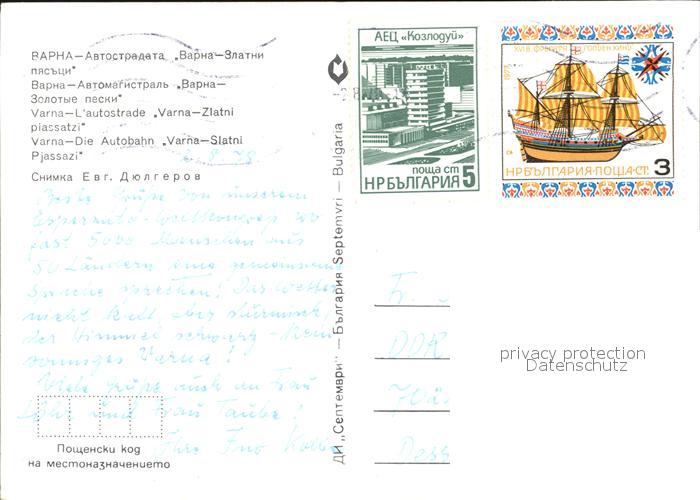 ВАРНА—Автострадата „Варна—Златни
пясъци"
Варна—Автомагистраль „Варна—
Золотые пески"
Varna—L'autostrade „Varna—Zlatni
piassatzi"
Varna—Die Autobahn „Varna—Slatni
Pjassazi"
Снимка Евг. Дюлгеров
Beste Grüße von unserem
Esperanto-Weltkongreß wo
fast 5000 Menschen aus
50 Ländern eine gemeinsame
Sprache sprechen! Das Wetter
nicht kalt, aber stürmisch,
der Himmel schwarz - Kein
sonniges Varna!
Viele Grüße auch an Frau
und Frau Taube!
Ihre
Пощенски код
на местоназначението
ДИ „Септември" — България Septemvri — Bulgaria
АЕЦ „Козлодуй"
поща ст
НРБЪЛГАРИЯ 5
НРБЪЛГАРИЯ·ПОЩА·СТ. 3
DDR
Dess
privacy protection
Datenschutz